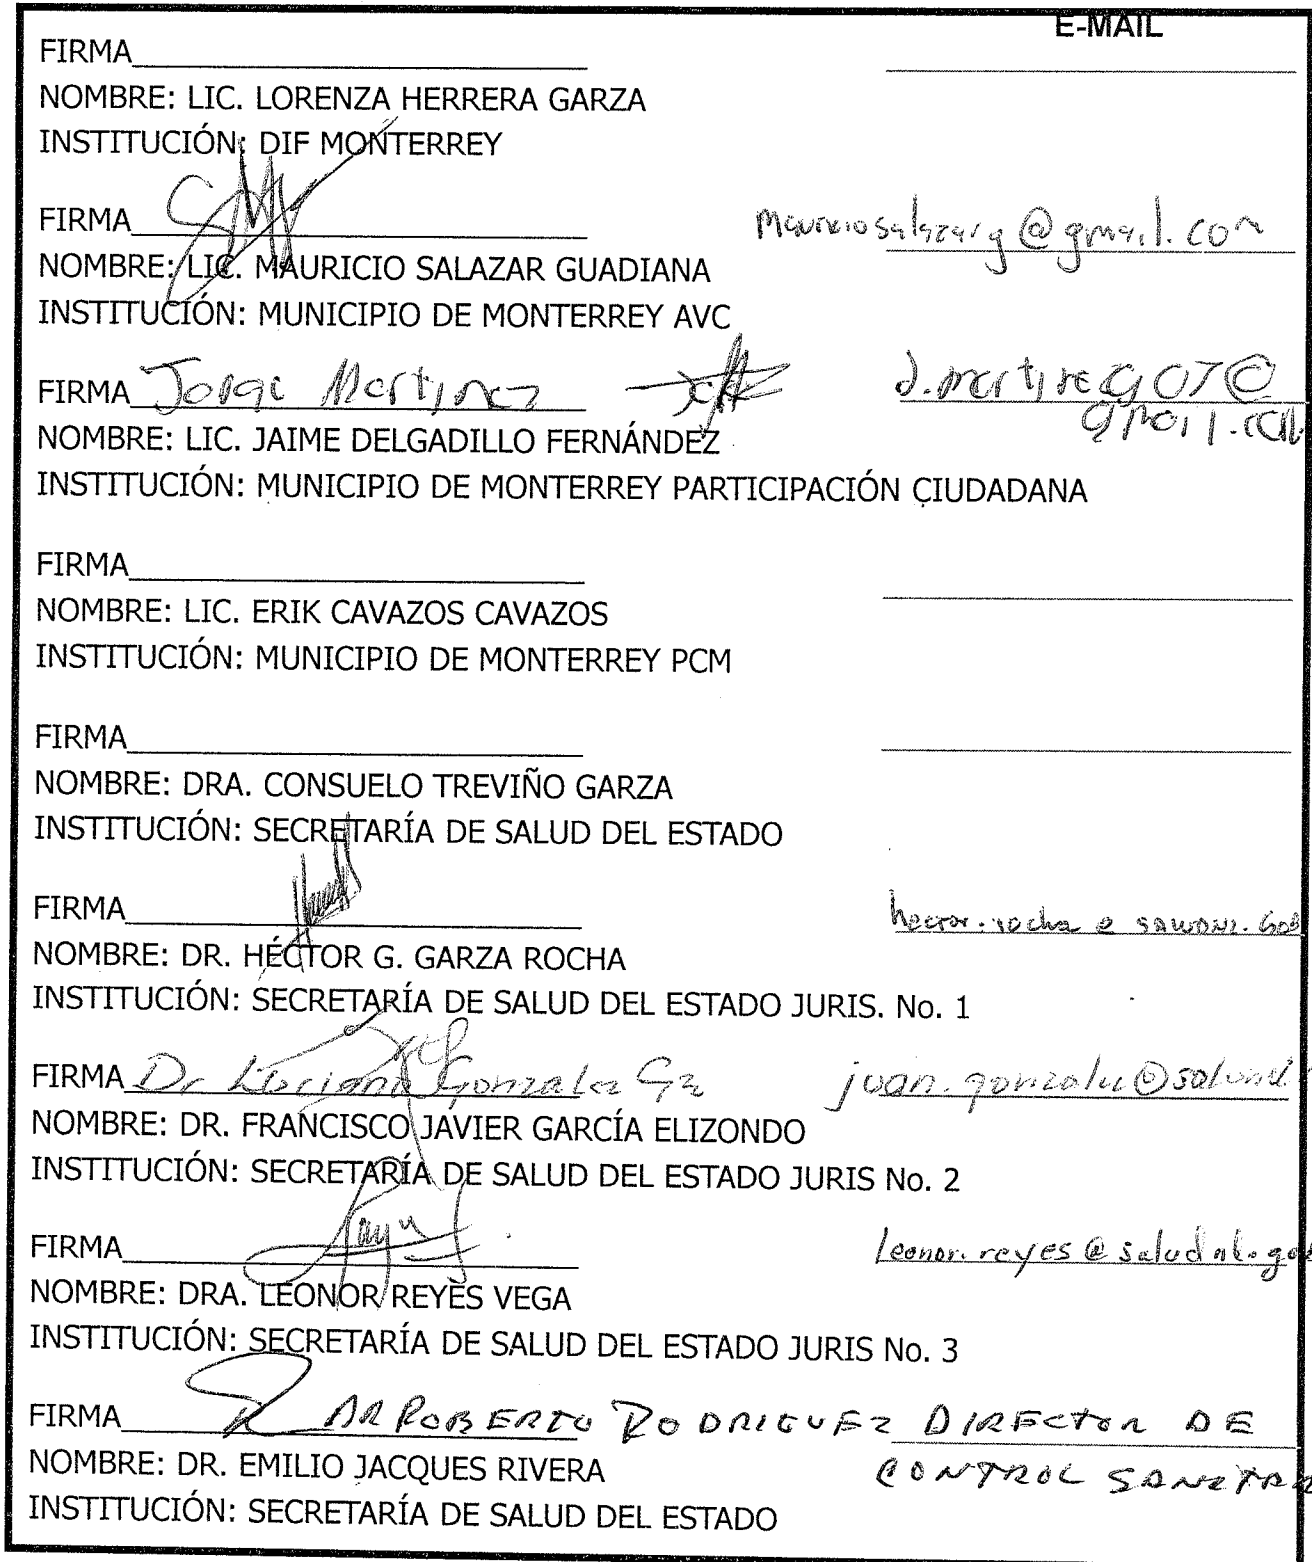 E-MAIL
FIRMA
NOMBRE: LIC. LORENZA HERRERA GARZA
INSTITUCIÓN: DIF MONTERREY
FIRMA mauriciosalazarg@gmail.com
NOMBRE: LIC. MAURICIO SALAZAR GUADIANA
INSTITUCIÓN: MUNICIPIO DE MONTERREY AVC
FIRMA Jorge Martinez
NOMBRE: LIC. JAIME DELGADILLO FERNÁNDEZ
INSTITUCIÓN: MUNICIPIO DE MONTERREY PARTICIPACIÓN CIUDADANA
FIRMA
NOMBRE: LIC. ERIK CAVAZOS CAVAZOS
INSTITUCIÓN: MUNICIPIO DE MONTERREY PCM
FIRMA
NOMBRE: DRA. CONSUELO TREVIÑO GARZA
INSTITUCIÓN: SECRETARÍA DE SALUD DEL ESTADO
FIRMA
NOMBRE: DR. HÉCTOR G. GARZA ROCHA
INSTITUCIÓN: SECRETARÍA DE SALUD DEL ESTADO JURIS. No. 1
FIRMA Dr Gonzalez Gz
NOMBRE: DR. FRANCISCO JAVIER GARCÍA ELIZONDO
INSTITUCIÓN: SECRETARÍA DE SALUD DEL ESTADO JURIS No. 2
FIRMA leonor.reyes@saludnl.gob
NOMBRE: DRA. LEONOR REYES VEGA
INSTITUCIÓN: SECRETARÍA DE SALUD DEL ESTADO JURIS No. 3
FIRMA DR ROBERTO RODRIGUEZ DIRECTOR DE
NOMBRE: DR. EMILIO JACQUES RIVERA CONTROL
INSTITUCIÓN: SECRETARÍA DE SALUD DEL ESTADO